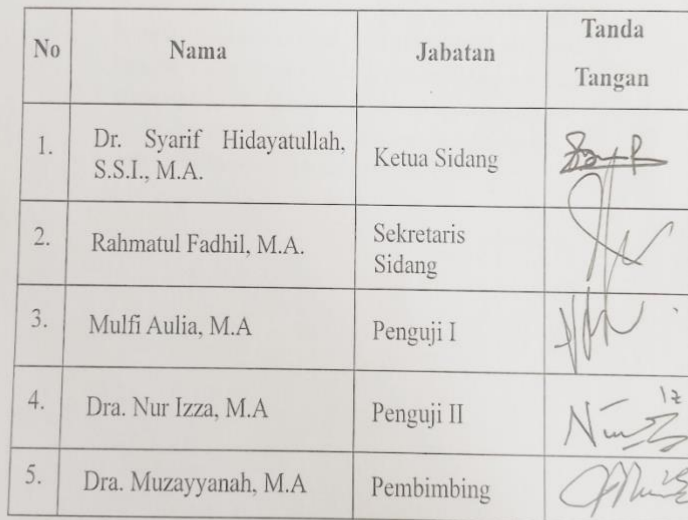 No Nama Jabatan Tanda
Tangan
1. Dr. Syarif Hidayatullah,
S.S.I., M.A. Ketua Sidang
2. Rahmatul Fadhil, M.A. Sekretaris
Sidang
3. Mulfi Aulia, M.A Penguji I
4. Dra. Nur Izza, M.A Penguji II
5. Dra. Muzayyanah, M.A Pembimbing